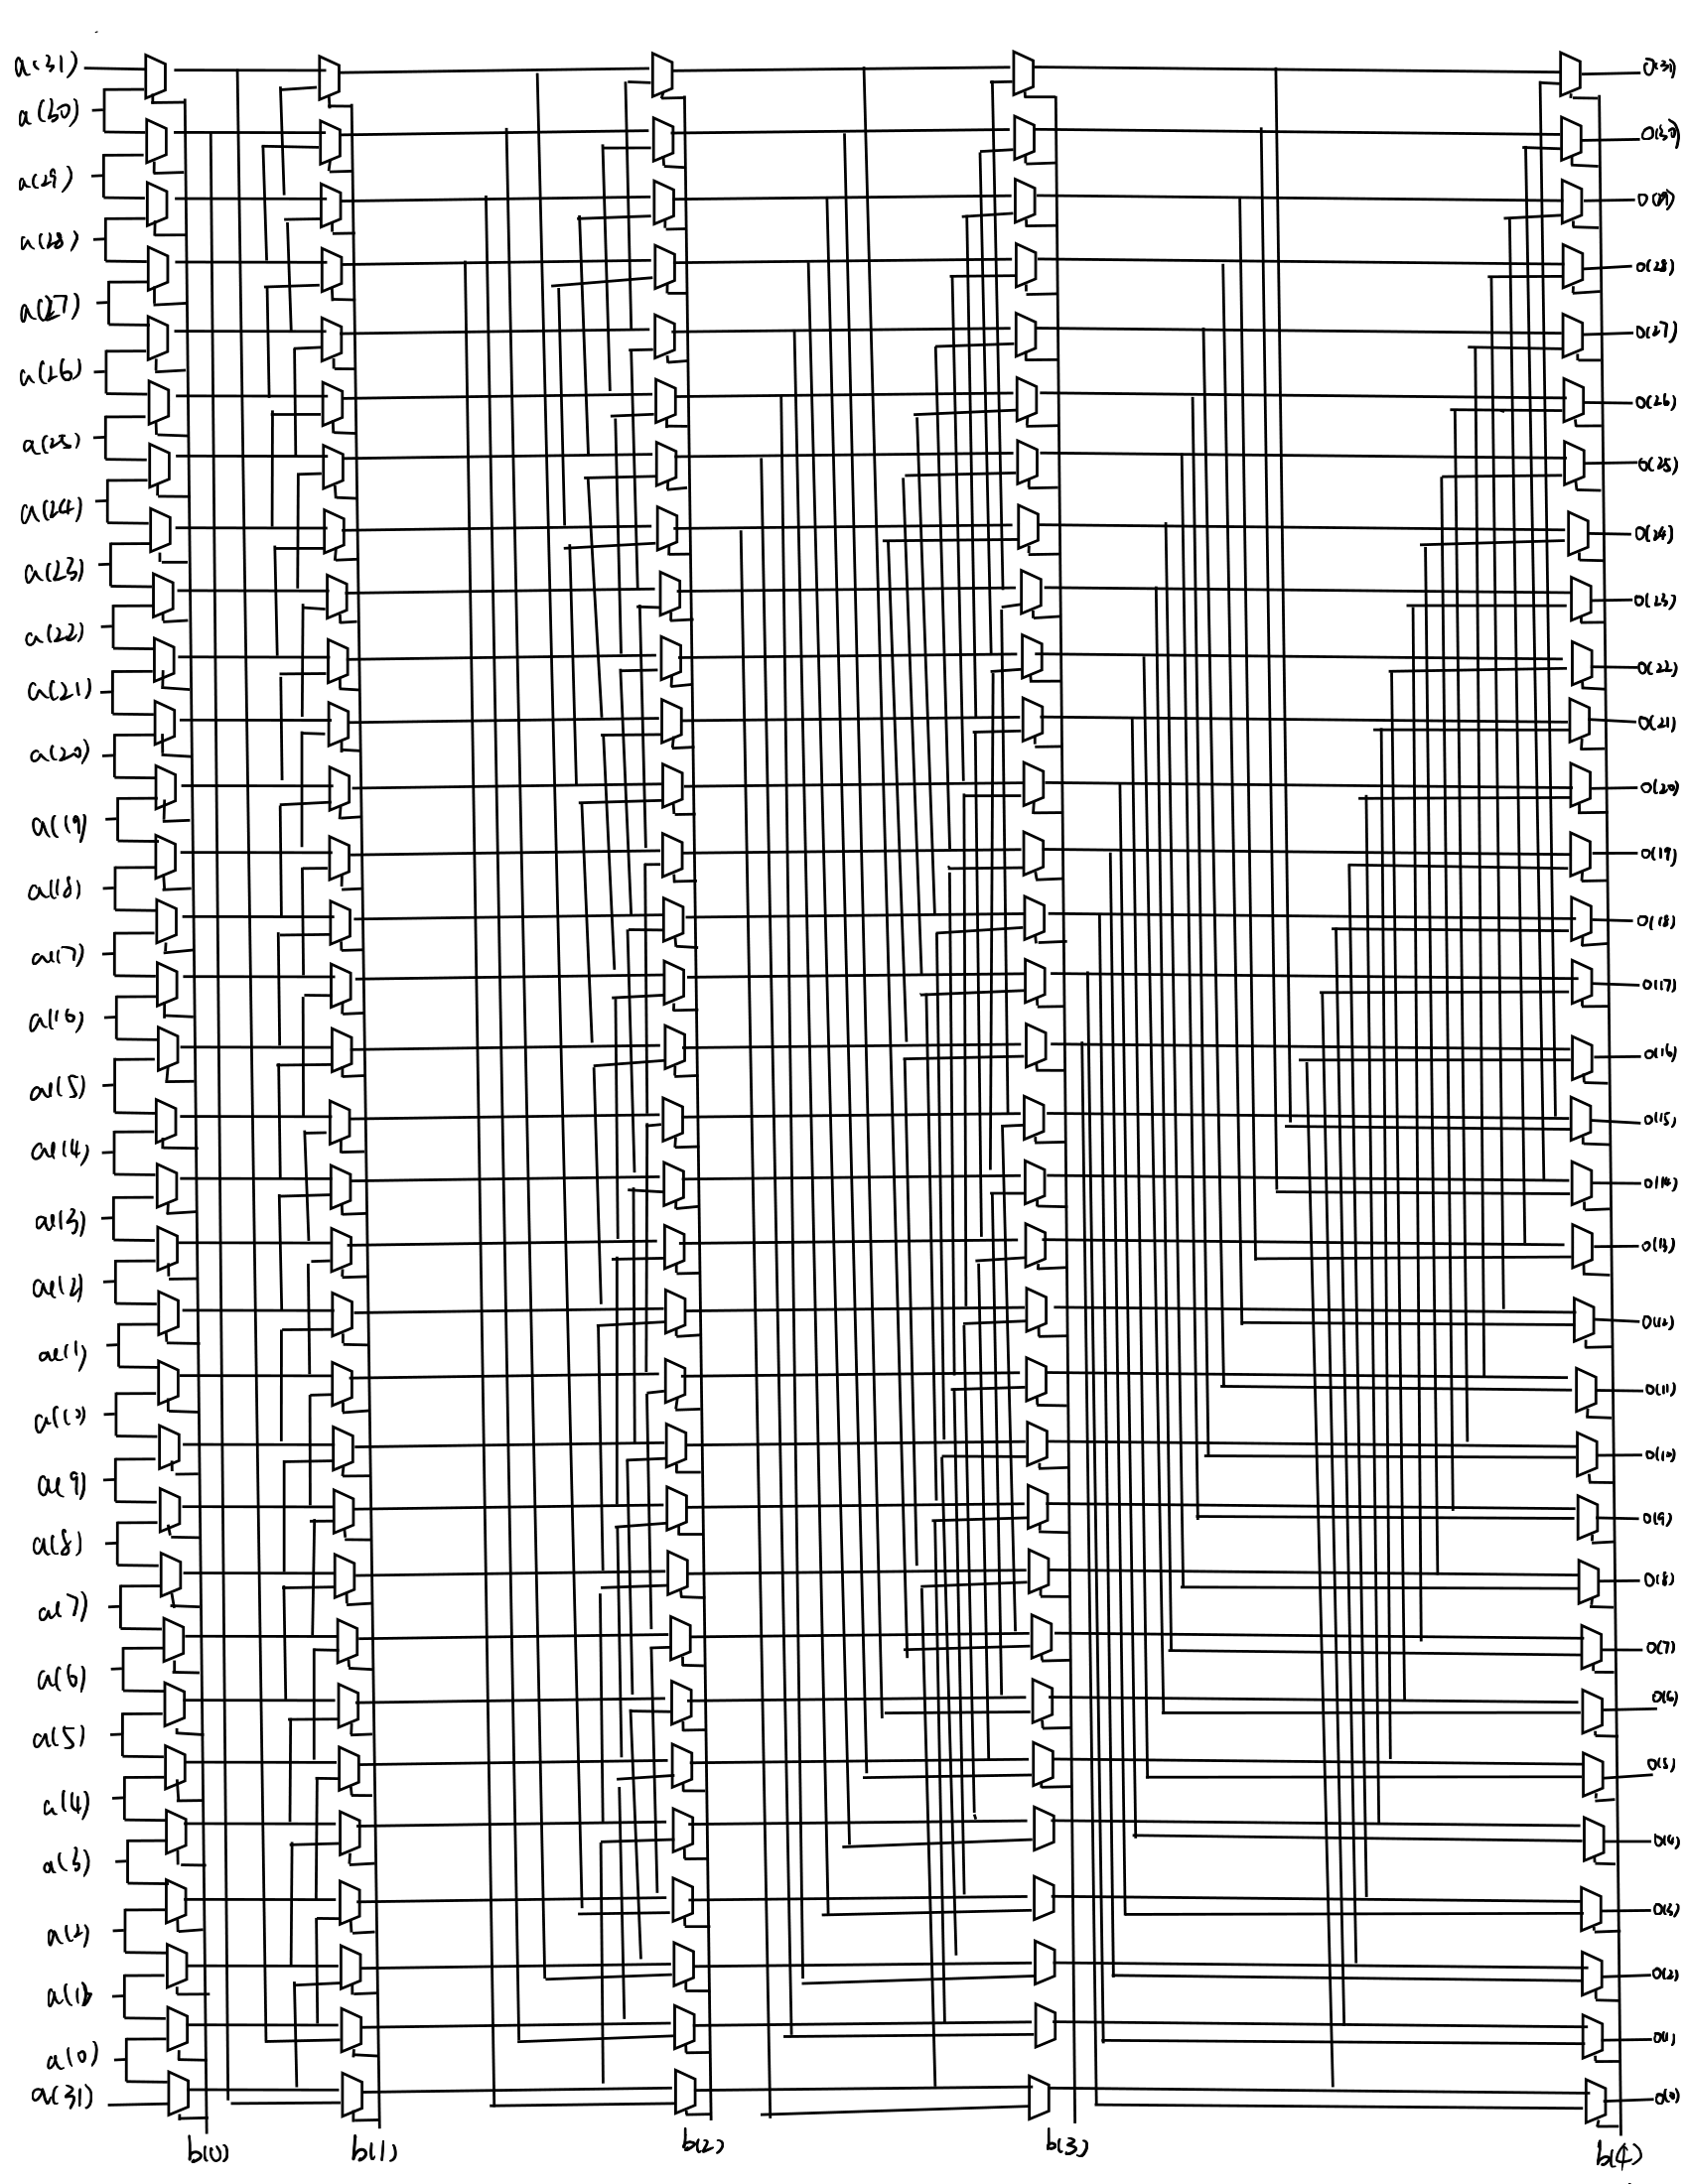 a(31)
a(30)
a(29)
a(28)
a(27)
a(26)
a(25)
a(24)
a(23)
a(22)
a(21)
a(20)
a(19)
a(18)
a(17)
a(16)
a(15)
a(14)
a(13)
a(12)
a(11)
a(10)
a(9)
a(8)
a(7)
a(6)
a(5)
a(4)
a(3)
a(2)
a(1)
a(0)
a(31)
b(0)
b(1)
b(2)
b(3)
b(4)
O(31)
O(30)
O(29)
O(28)
O(27)
O(26)
O(25)
O(24)
O(23)
O(22)
O(21)
O(20)
O(19)
O(18)
O(17)
O(16)
O(15)
O(14)
O(13)
O(12)
O(11)
O(10)
O(9)
O(8)
O(7)
O(6)
O(5)
O(4)
O(3)
O(2)
O(1)
O(0)